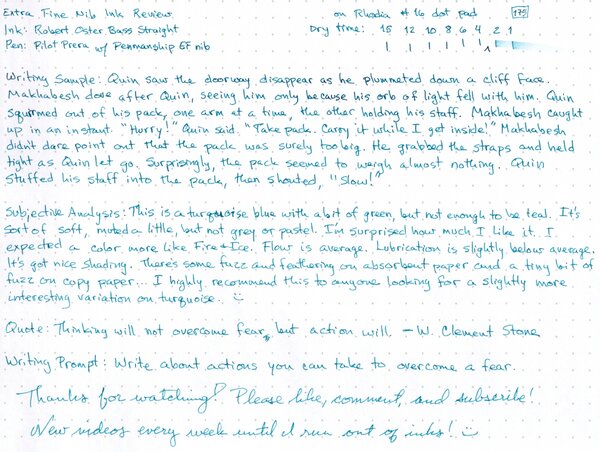 Extra Fine Nib Ink Review on Rhodia #16 dot pad 175
Ink: Robert Oster Bass Straight Dry time: 15 12 10 8 6 4 2 1
Pen: Pilot Prera w/ Penmanship EF nib
Writing Sample: Quin saw the doorway disappear as he plummeted down a cliff face.
Makhabesh dove after Quin, seeing him only because his orb of light fell with him. Quin
squirmed out of his pack, one arm at a time, the other holding his staff. Makhabesh caught
up in an instant. "Hurry!" Quin said. "Take pack. Carry it while I get inside!" Makhabesh
didn't dare point out that the pack was surely too big. He grabbed the straps and held
tight as Quin let go. Surprisingly, the pack seemed to weigh almost nothing. Quin
stuffed his staff into the pack, then shouted, "Slow!"
Subjective Analysis: This is a turquoise blue with a bit of green, but not enough to be teal. It's
sort of soft, muted a little, but not grey or pastel. I'm surprised how much I like it. I
expected a color more like Fire + Ice. Flow is average. Lubrication is slightly below average.
It's got nice shading. There's some fuzz and feathering on absorbent paper and a tiny bit of
fuzz on copy paper... I highly recommend this to anyone looking for a slightly more
interesting variation on turquoise.
Quote: Thinking will not overcome fear, but action will. - W. Clement Stone
Writing Prompt: Write about actions you can take to overcome a fear.
Thanks for watching! Please like, comment, and subscribe!
New videos every week until I run out of inks!